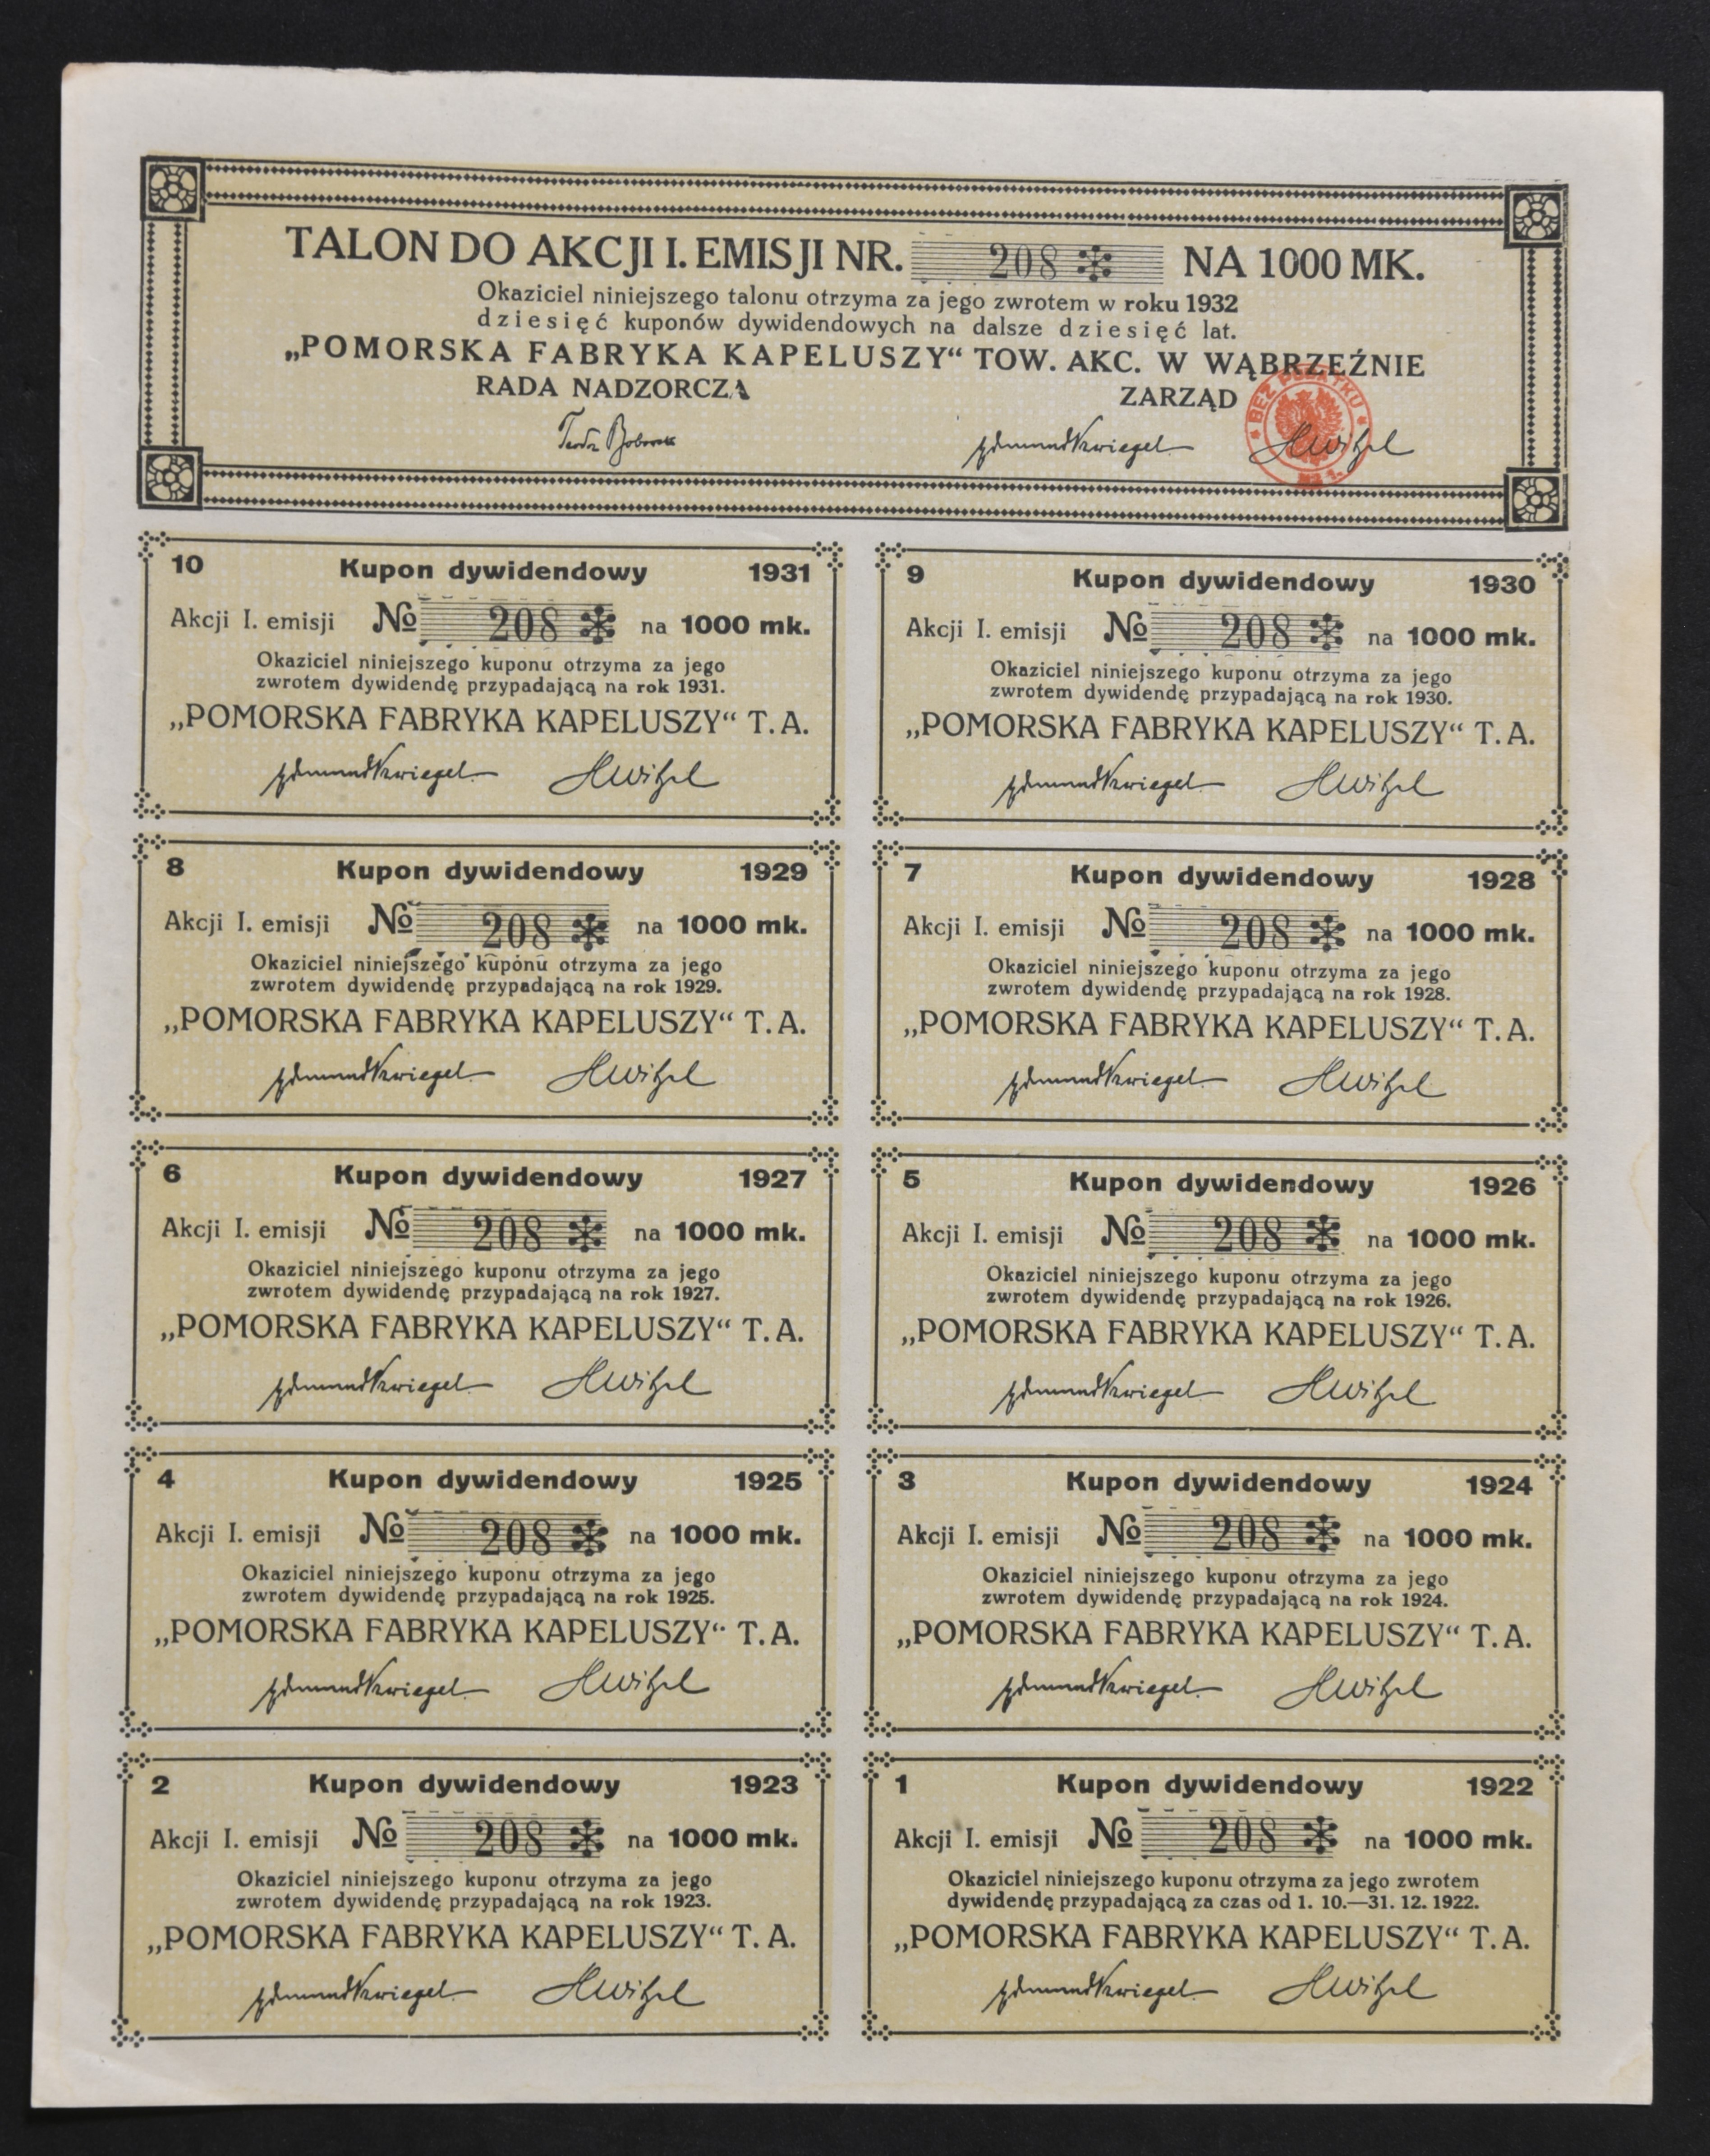 TALON DO AKCJI I. EMISJI NR. 208 NA 1000 MK.
Okaziciel niniejszego talonu otrzyma za jego zwrotem w roku 1932
dziesięć kuponów dywidendowych na dalsze dziesięć lat.
„POMORSKA FABRYKA KAPELUSZY“ TOW. AKC. W WĄBRZEŹNIE
RADA NADZORCZA ZARZĄD
BEZ PODATKU
10 Kupon dywidendowy 1931
Akcji I. emisji № 208 na 1000 mk.
Okaziciel niniejszego kuponu otrzyma za jego
zwrotem dywidendę przypadającą na rok 1931.
„POMORSKA FABRYKA KAPELUSZY“ T. A.
9 Kupon dywidendowy 1930
Akcji I. emisji № 208 na 1000 mk.
Okaziciel niniejszego kuponu otrzyma za jego
zwrotem dywidendę przypadającą na rok 1930.
„POMORSKA FABRYKA KAPELUSZY“ T. A.
8 Kupon dywidendowy 1929
Akcji I. emisji № 208 na 1000 mk.
Okaziciel niniejszego kuponu otrzyma za jego
zwrotem dywidendę przypadającą na rok 1929.
„POMORSKA FABRYKA KAPELUSZY“ T. A.
7 Kupon dywidendowy 1928
Akcji I. emisji № 208 na 1000 mk.
Okaziciel niniejszego kuponu otrzyma za jego
zwrotem dywidendę przypadającą na rok 1928.
„POMORSKA FABRYKA KAPELUSZY“ T. A.
6 Kupon dywidendowy 1927
Akcji I. emisji № 208 na 1000 mk.
Okaziciel niniejszego kuponu otrzyma za jego
zwrotem dywidendę przypadającą na rok 1927.
„POMORSKA FABRYKA KAPELUSZY“ T. A.
5 Kupon dywidendowy 1926
Akcji I. emisji № 208 na 1000 mk.
Okaziciel niniejszego kuponu otrzyma za jego
zwrotem dywidendę przypadającą na rok 1926.
„POMORSKA FABRYKA KAPELUSZY“ T. A.
4 Kupon dywidendowy 1925
Akcji I. emisji № 208 na 1000 mk.
Okaziciel niniejszego kuponu otrzyma za jego
zwrotem dywidendę przypadającą na rok 1925.
„POMORSKA FABRYKA KAPELUSZY“ T. A.
3 Kupon dywidendowy 1924
Akcji I. emisji № 208 na 1000 mk.
Okaziciel niniejszego kuponu otrzyma za jego
zwrotem dywidendę przypadającą na rok 1924.
„POMORSKA FABRYKA KAPELUSZY“ T. A.
2 Kupon dywidendowy 1923
Akcji I. emisji № 208 na 1000 mk.
Okaziciel niniejszego kuponu otrzyma za jego
zwrotem dywidendę przypadającą na rok 1923.
„POMORSKA FABRYKA KAPELUSZY“ T. A.
1 Kupon dywidendowy 1922
Akcji I. emisji № 208 na 1000 mk.
Okaziciel niniejszego kuponu otrzyma za jego zwrotem
dywidendę przypadającą za czas od 1. 10.—31. 12. 1922.
„POMORSKA FABRYKA KAPELUSZY“ T. A.